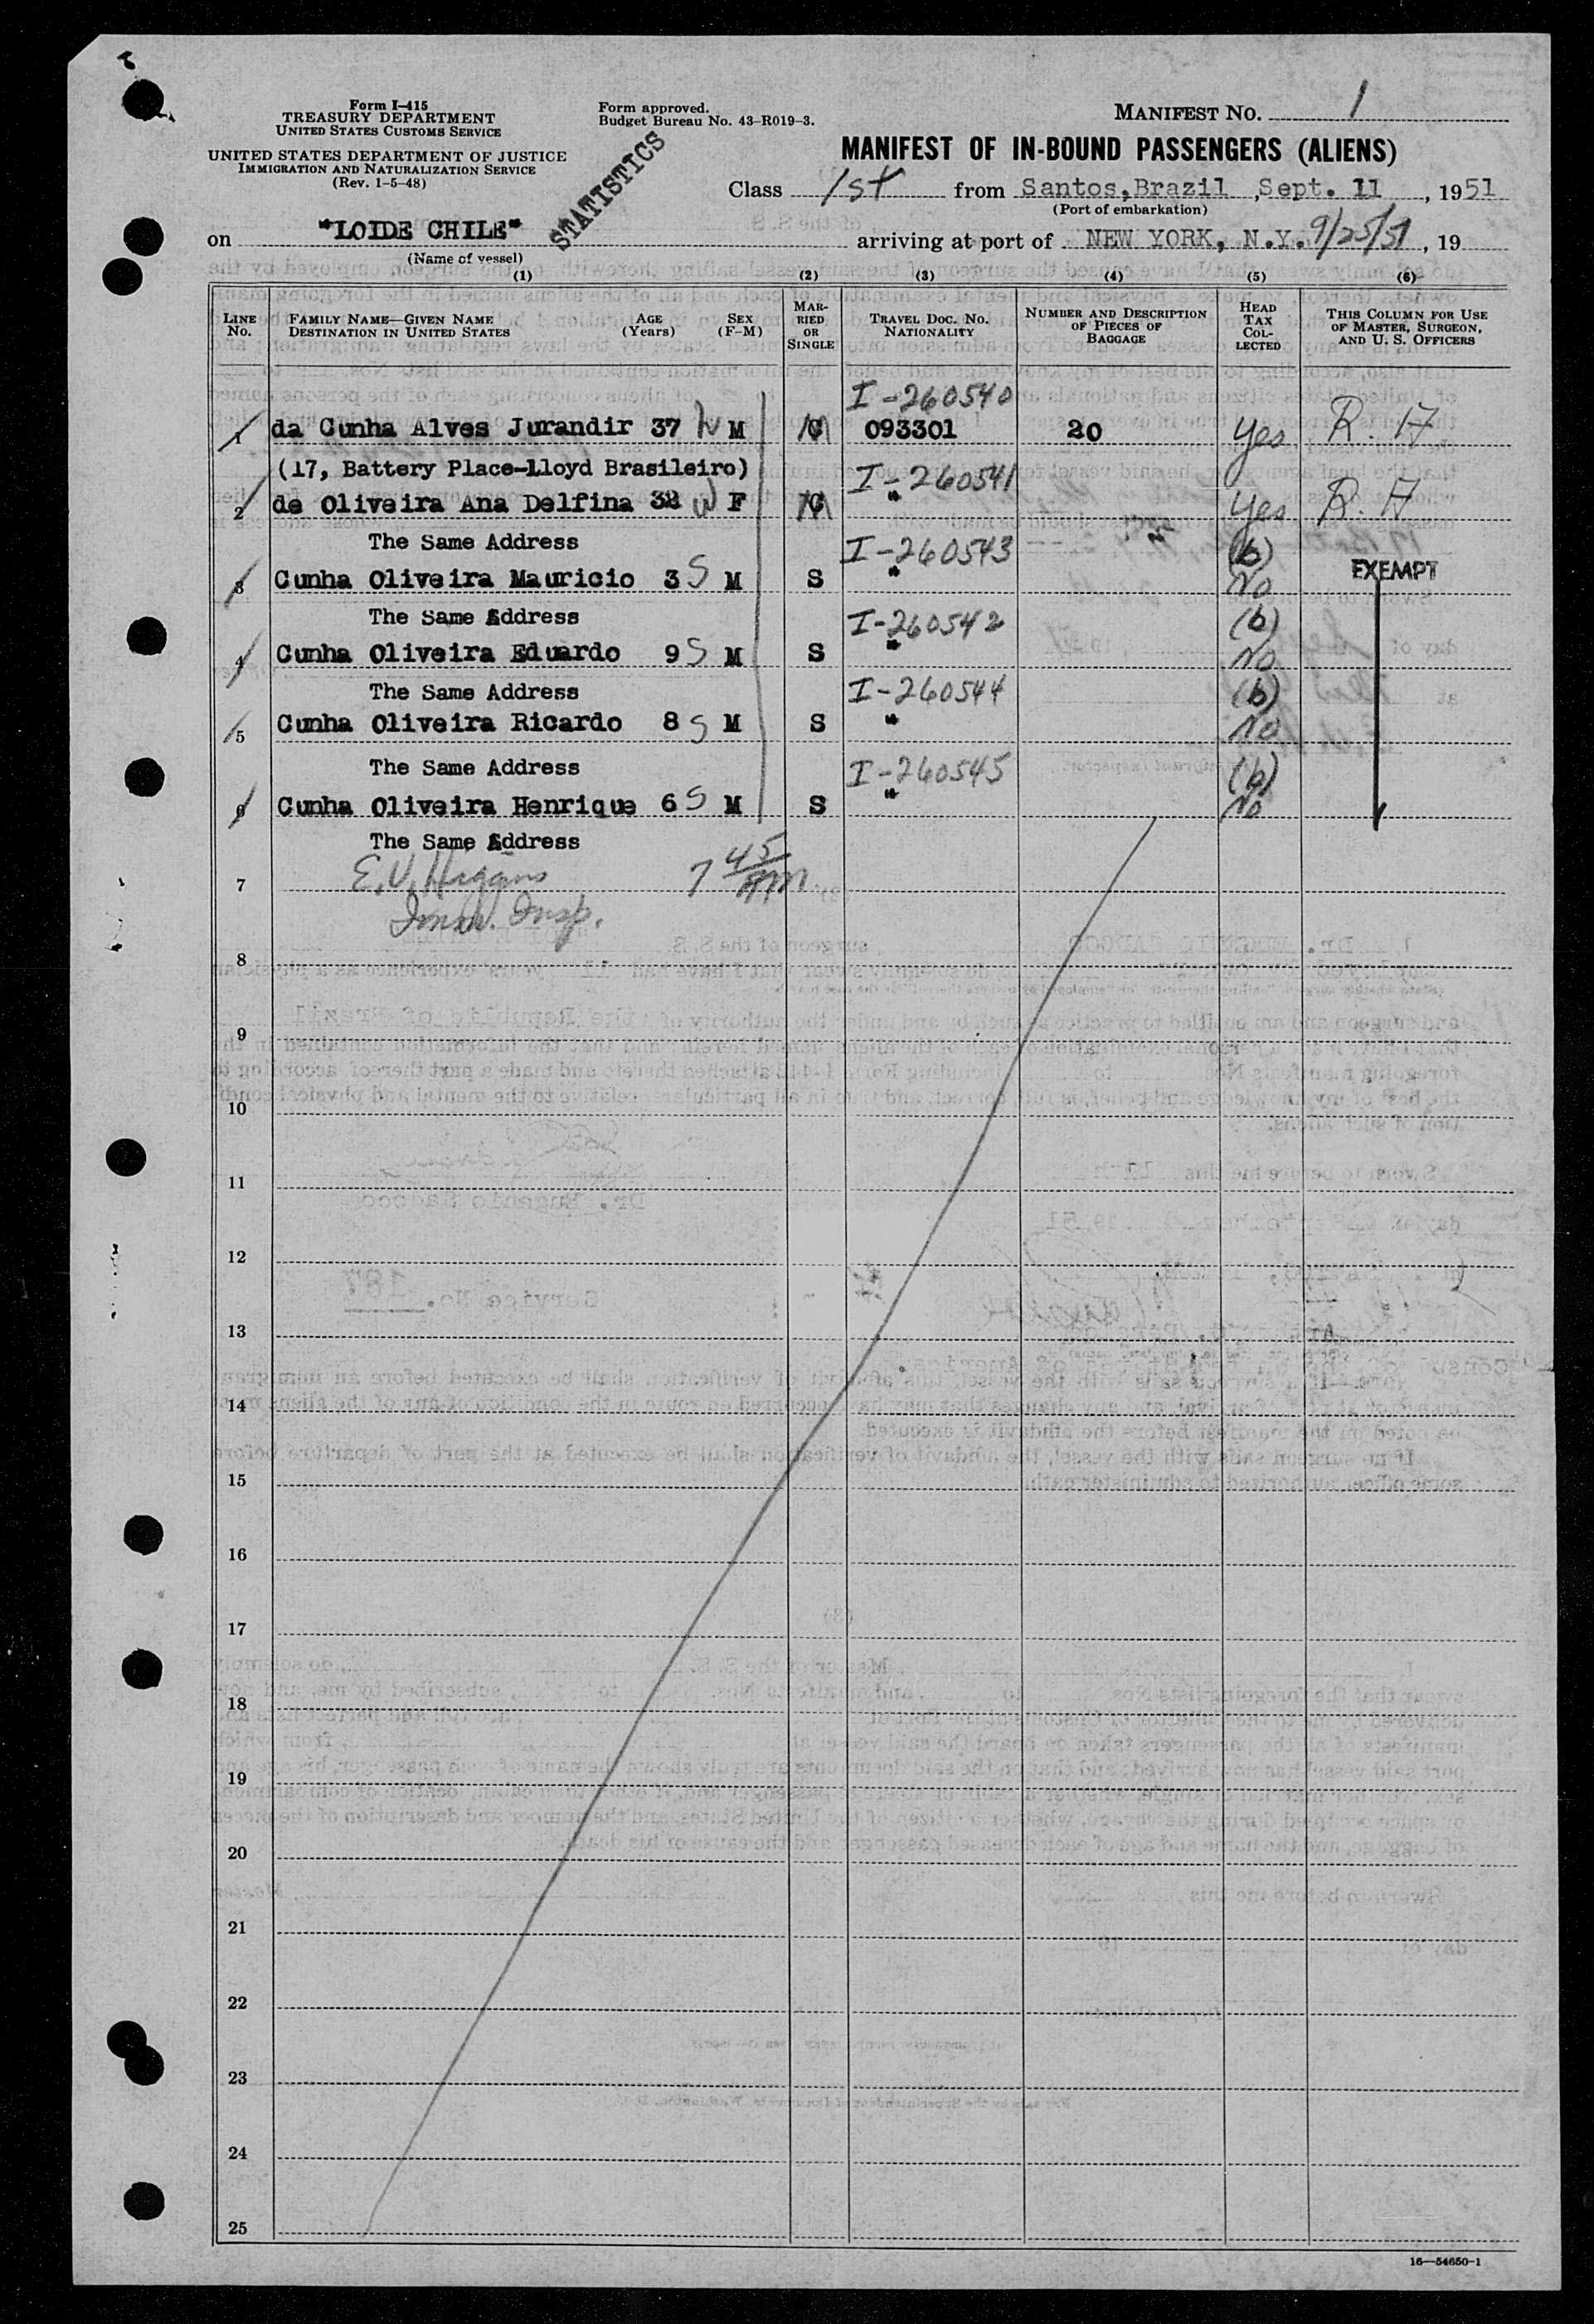 Form I-415
TREASURY DEPARTMENT
UNITED STATES CUSTOMS SERVICE
UNITED STATES DEPARTMENT OF JUSTICE
IMMIGRATION AND NATURALIZATION SERVICE
(Rev. 1-5-48)
Form approved.
Budget Bureau No. 43-R019-3.
STATISTICS
MANIFEST NO. 1
MANIFEST OF IN-BOUND PASSENGERS (ALIENS)
Class 1st from Santos, Brazil, Sept. 11, 1951
(Port of embarkation)
on "LOIDE CHILE" arriving at port of NEW YORK, N.Y. 9/25/51, 19
(Name of vessel)
(1) (2) (3) (4) (5) (6)
LINE No. FAMILY NAME—GIVEN NAME DESTINATION IN UNITED STATES AGE (Years) SEX (F-M) MARRIED OR SINGLE TRAVEL DOC. NO. NATIONALITY NUMBER AND DESCRIPTION OF PIECES OF BAGGAGE HEAD TAX COLLECTED THIS COLUMN FOR USE OF MASTER, SURGEON, AND U. S. OFFICERS
I-260540
1 da Cunha Alves Jurandir 37 M M 093301 20 yes R. 17
(17, Battery Place-Lloyd Brasileiro)
I-260541
2 de Oliveira Ana Delfina 32 W F M " yes
The Same Address
I-260543 (b)
3 Cunha Oliveira Mauricio 3 S M S " No EXEMPT
The Same Address
I-260542 (b)
4 Cunha Oliveira Eduardo 9 S M S " No
The Same Address
I-260544 (b)
5 Cunha Oliveira Ricardo 8 S M S " No
The Same Address
I-260545 (b)
6 Cunha Oliveira Henrique 6 S M S " No
The Same Address
E. V. Higgins 7 45 AM
7
Immi. Insp.
8
9
10
11
12
13
14
15
16
17
18
19
20
21
22
23
24
25
16—54650-1